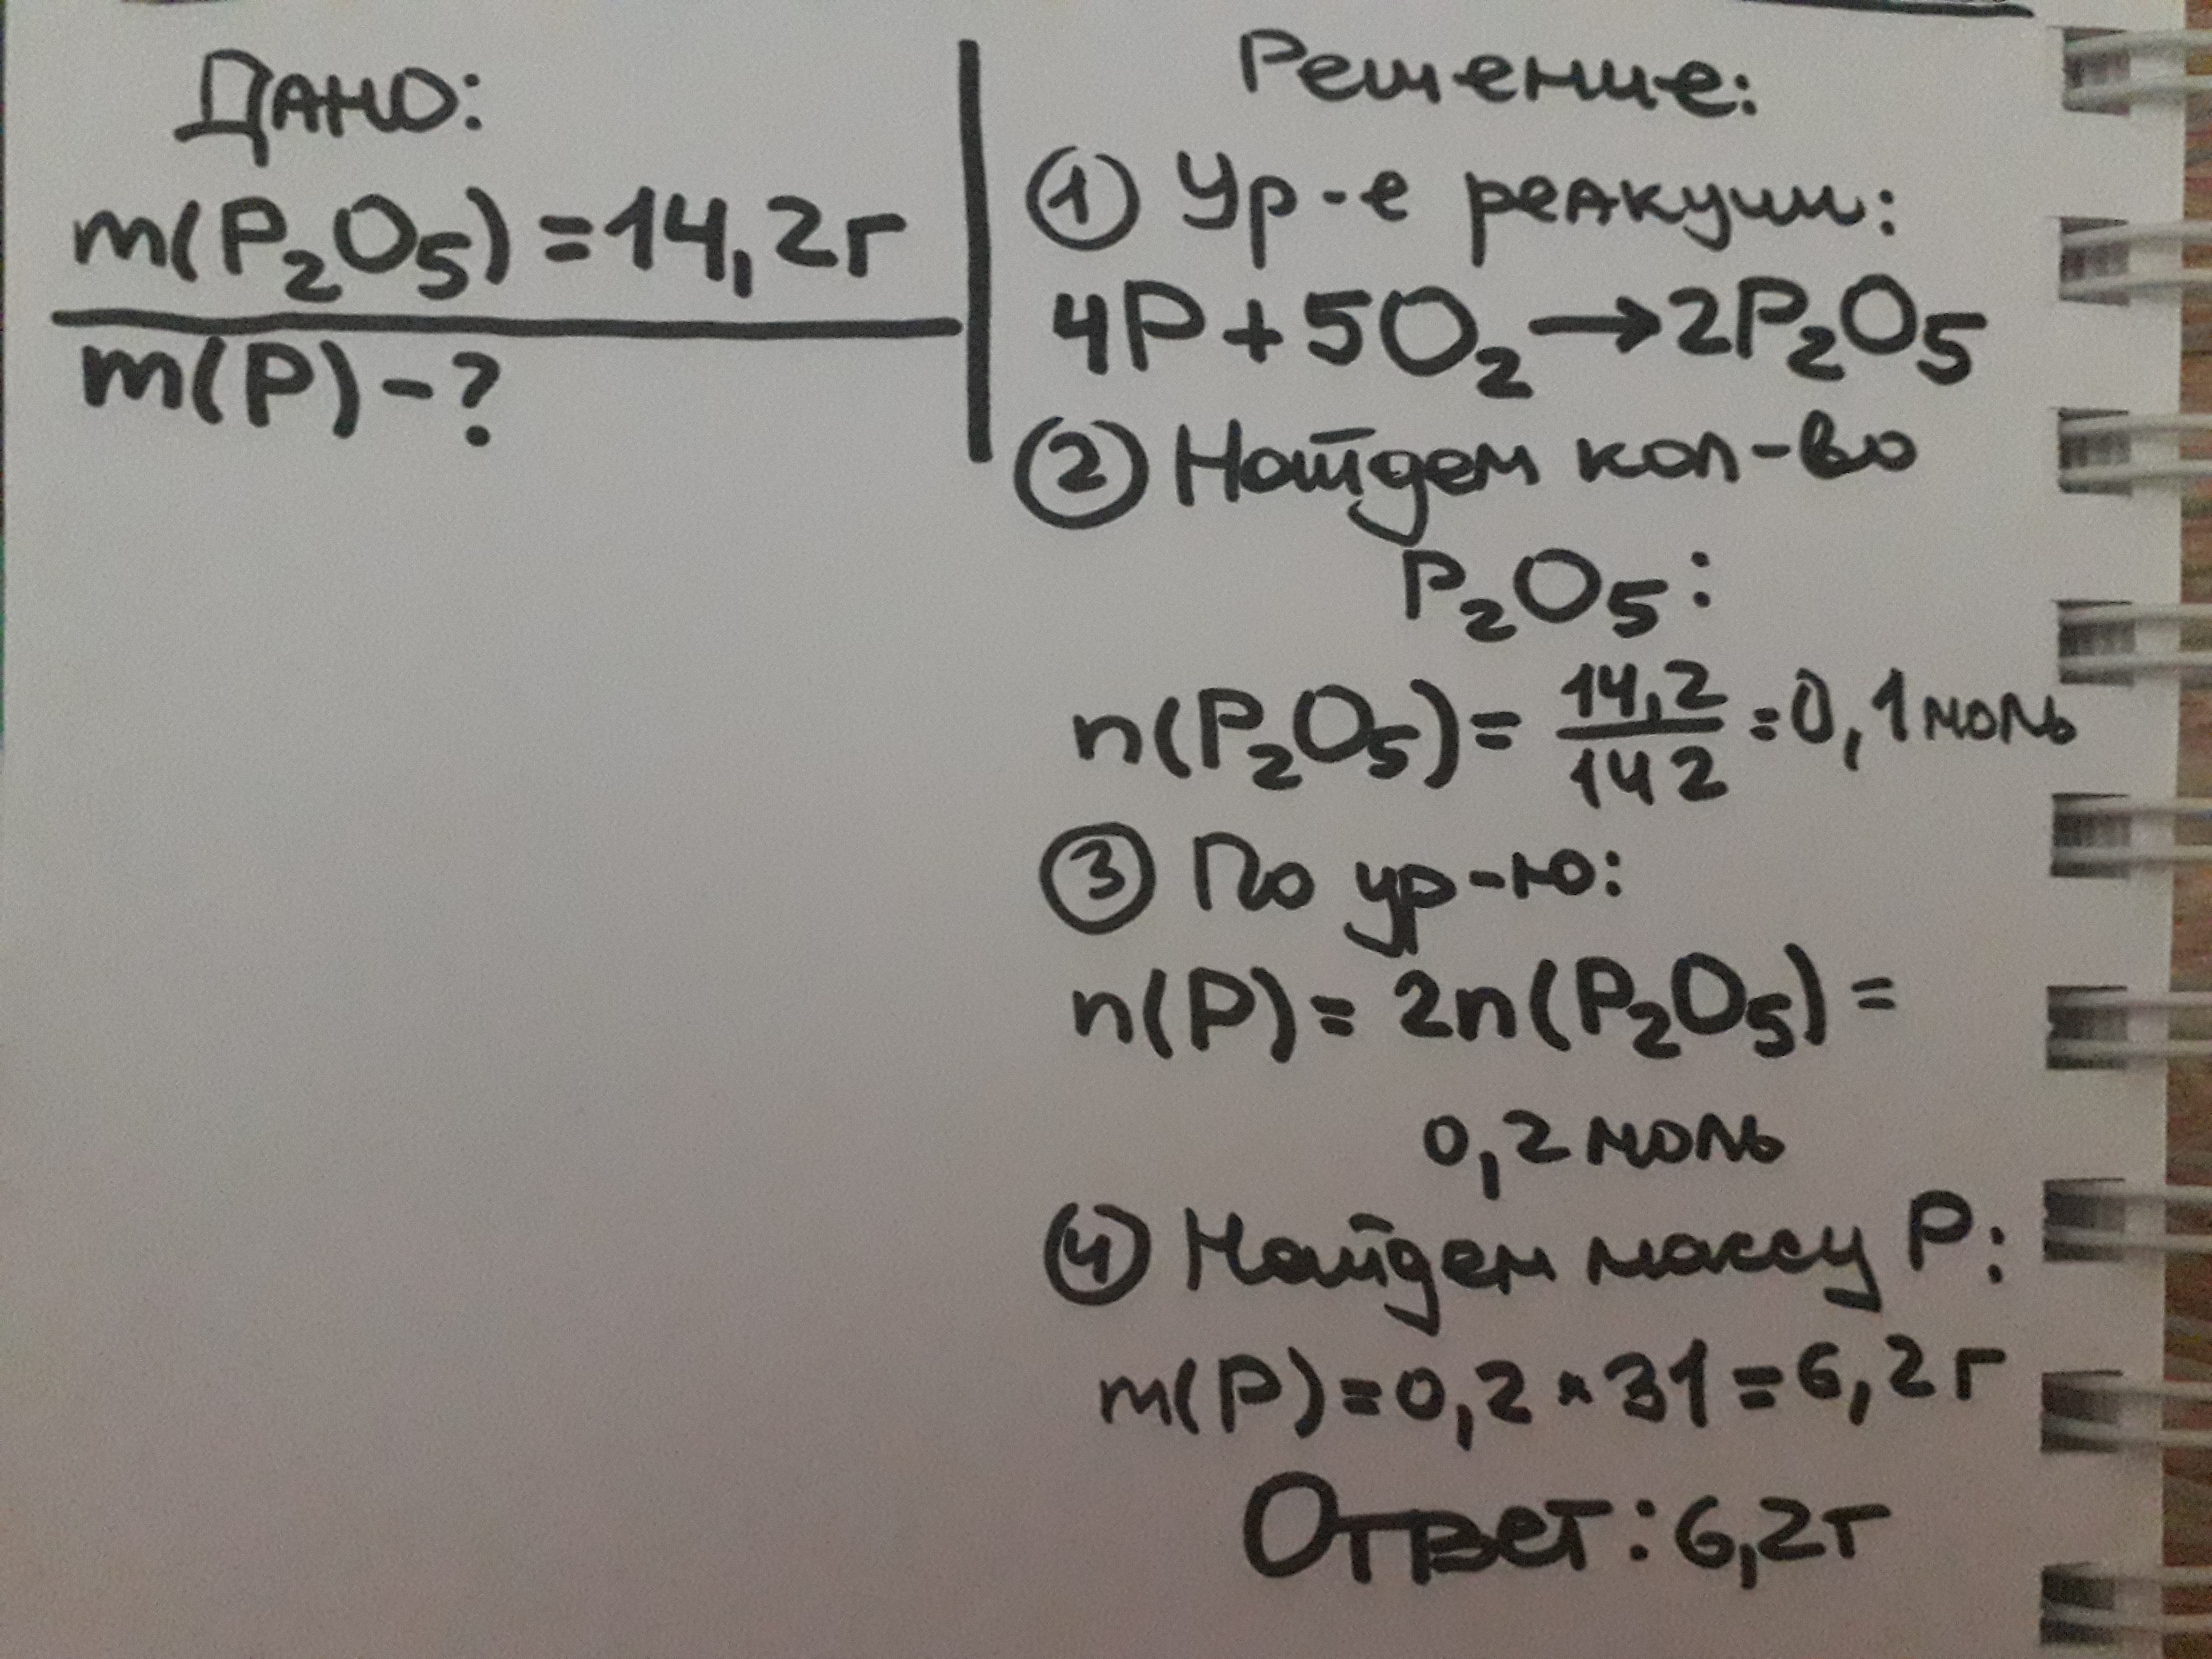 Дано:
m(P₂O₅)=14,2г
m(P)-?
Решение:
① Ур-е реакции:
4P+5O₂→2P₂O₅
② Найдем кол-во
P₂O₅:
n(P₂O₅)= 14,2/142 =0,1моль
③ По ур-ю:
n(P)= 2n(P₂O₅)=
0,2 моль
④ Найдем массу P:
m(P)=0,2*31=6,2г
Ответ: 6,2г